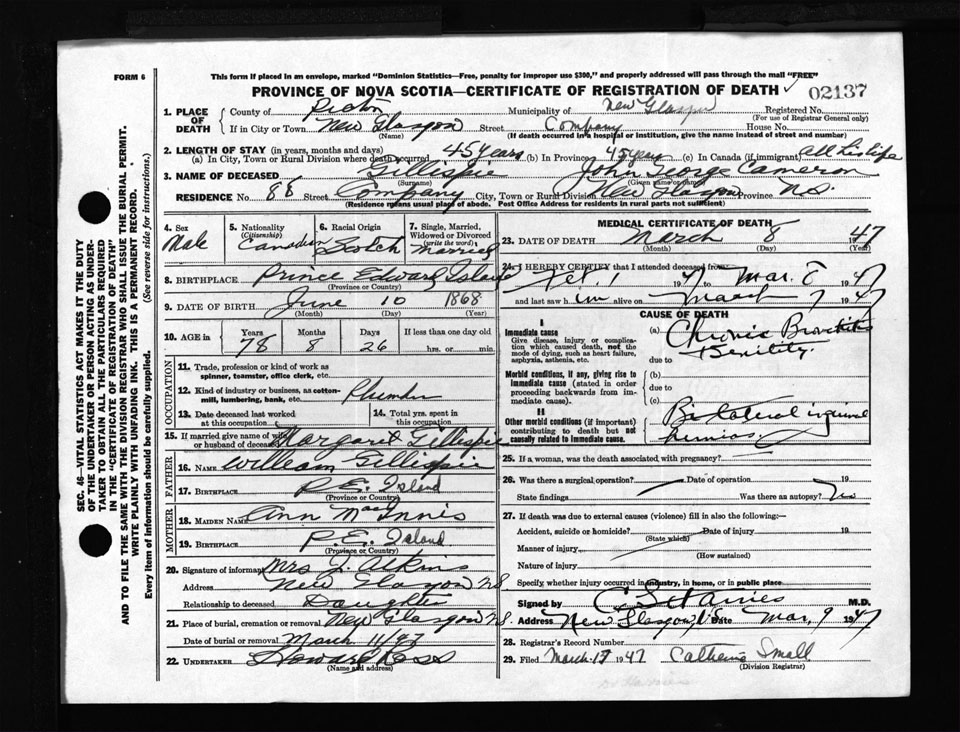 FORM 6
This form if placed in an envelope, marked "Dominion Statistics—Free, penalty for improper use $300," and properly addressed will pass through the mail "FREE"
PROVINCE OF NOVA SCOTIA—CERTIFICATE OF REGISTRATION OF DEATH
02137
1. PLACE OF DEATH
County of Pictou Municipality of New Glasgow Registration No.
(For use of Registrar General only)
If in City or Town New Glasgow Street Company House No.
(Name) (If death occurred in a hospital or institution, give the name instead of street and number)
2. LENGTH OF STAY (in years, months and days)
(a) In City, Town or Rural Division where death occurred 45 years (b) In Province 45 years (c) In Canada (if immigrant) All his life
3. NAME OF DECEASED Gillespie John George Cameron
(Surname) (Given name or names)
RESIDENCE No. 86 Street Company City, Town or Rural Division New Glasgow Province N.S.
(Residence means usual place of abode. Post Office Address for residents in rural parts not sufficient)
4. Sex Male
5. Nationality (Citizenship) Canadian
6. Racial Origin Scotch
7. Single, Married, Widowed or Divorced (write the word) Married
8. BIRTHPLACE Prince Edward Island
(Province or Country)
9. DATE OF BIRTH June 10 1868
(Month) (Day) (Year)
10. AGE in Years Months Days If less than one day old
78 8 26 hrs. or min.
OCCUPATION
11. Trade, profession or kind of work as spinner, teamster, office clerk, etc.
12. Kind of industry or business, as cotton-mill, lumbering, bank, etc. Plumber
13. Date deceased last worked at this occupation
14. Total yrs. spent in this occupation
15. If married give name of wife or husband of deceased Margaret Gillespie
FATHER
16. NAME William Gillispie
17. BIRTHPLACE P.E. Island
(Province or Country)
MOTHER
18. MAIDEN NAME Ann MacInnis
19. BIRTHPLACE P.E. Island
(Province or Country)
20. Signature of informant Mrs L. Atkins
Address New Glasgow N.S
Relationship to deceased Daughter
21. Place of burial, cremation or removal New Glasgow N.S.
Date of burial or removal March 11/47
22. UNDERTAKER Howard Ross
(Name and address)
MEDICAL CERTIFICATE OF DEATH
23. DATE OF DEATH March 8 1947
(Month) (Day) (Year)
24. I HEREBY CERTIFY that I attended deceased from
Feb. 1 1947 to Mar. 8 1947
and last saw him alive on March 7 1947
CAUSE OF DEATH
I
Immediate cause
Give disease, injury or complication which caused death, not the mode of dying, such as heart failure, asphyxia, asthenia, etc.
(a) Chronic Bronchitis
Senility
due to
Morbid conditions, if any, giving rise to immediate cause (stated in order proceeding backwards from immediate cause).
(b)
due to
(c)
II
Other morbid conditions (if important) contributing to death but not causally related to immediate cause.
Bilateral inguinal hernias
25. If a woman, was the death associated with pregnancy?
26. Was there a surgical operation? Date of operation 19
State findings Was there autopsy? No
27. If death was due to external causes (violence) fill in also the following:—
Accident, suicide or homicide? Date of injury 19
(State which)
Manner of injury
(How sustained)
Nature of injury
Specify, whether injury occurred in industry, in home, or in public place
Signed by M.D.
Address New Glasgow, N.S. Date Mar. 9 1947
28. Registrar's Record Number
29. Filed March 17 1947 Catherine Small
(Division Registrar)
SEC. 46—VITAL STATISTICS ACT MAKES IT THE DUTY OF THE UNDERTAKER OR PERSON ACTING AS UNDERTAKER TO OBTAIN ALL THE PARTICULARS REQUIRED IN THE "CERTIFICATE OF REGISTRATION OF DEATH" AND TO FILE THE SAME WITH THE DIVISION REGISTRAR WHO SHALL ISSUE THE BURIAL PERMIT.
WRITE PLAINLY WITH UNFADING INK. THIS IS A PERMANENT RECORD.
Every item of information should be carefully supplied. (See reverse side for instructions.)